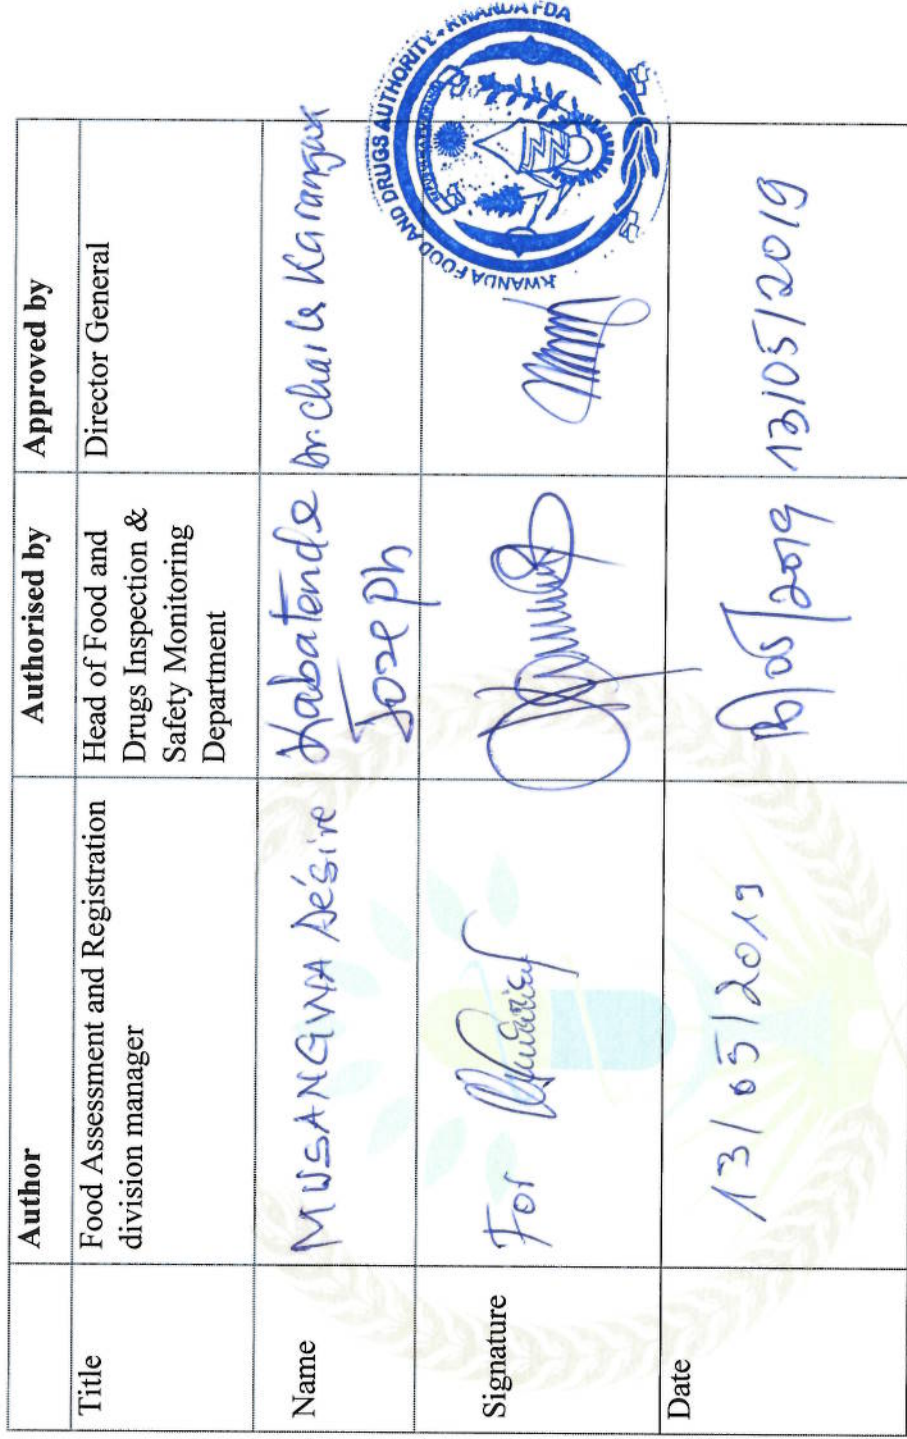 Author Authorised by Approved by
Title Food Assessment and Registration division manager Head of Food and Drugs Inspection & Safety Monitoring Department Director General
Name MUSANGWA Désire Kabatende Joseph Dr. Charles Karangwa
Signature For
Date 13/05/2019 13/05/2019 13/05/2019
RWANDA FOOD AND DRUGS AUTHORITY - RWANDA FDA